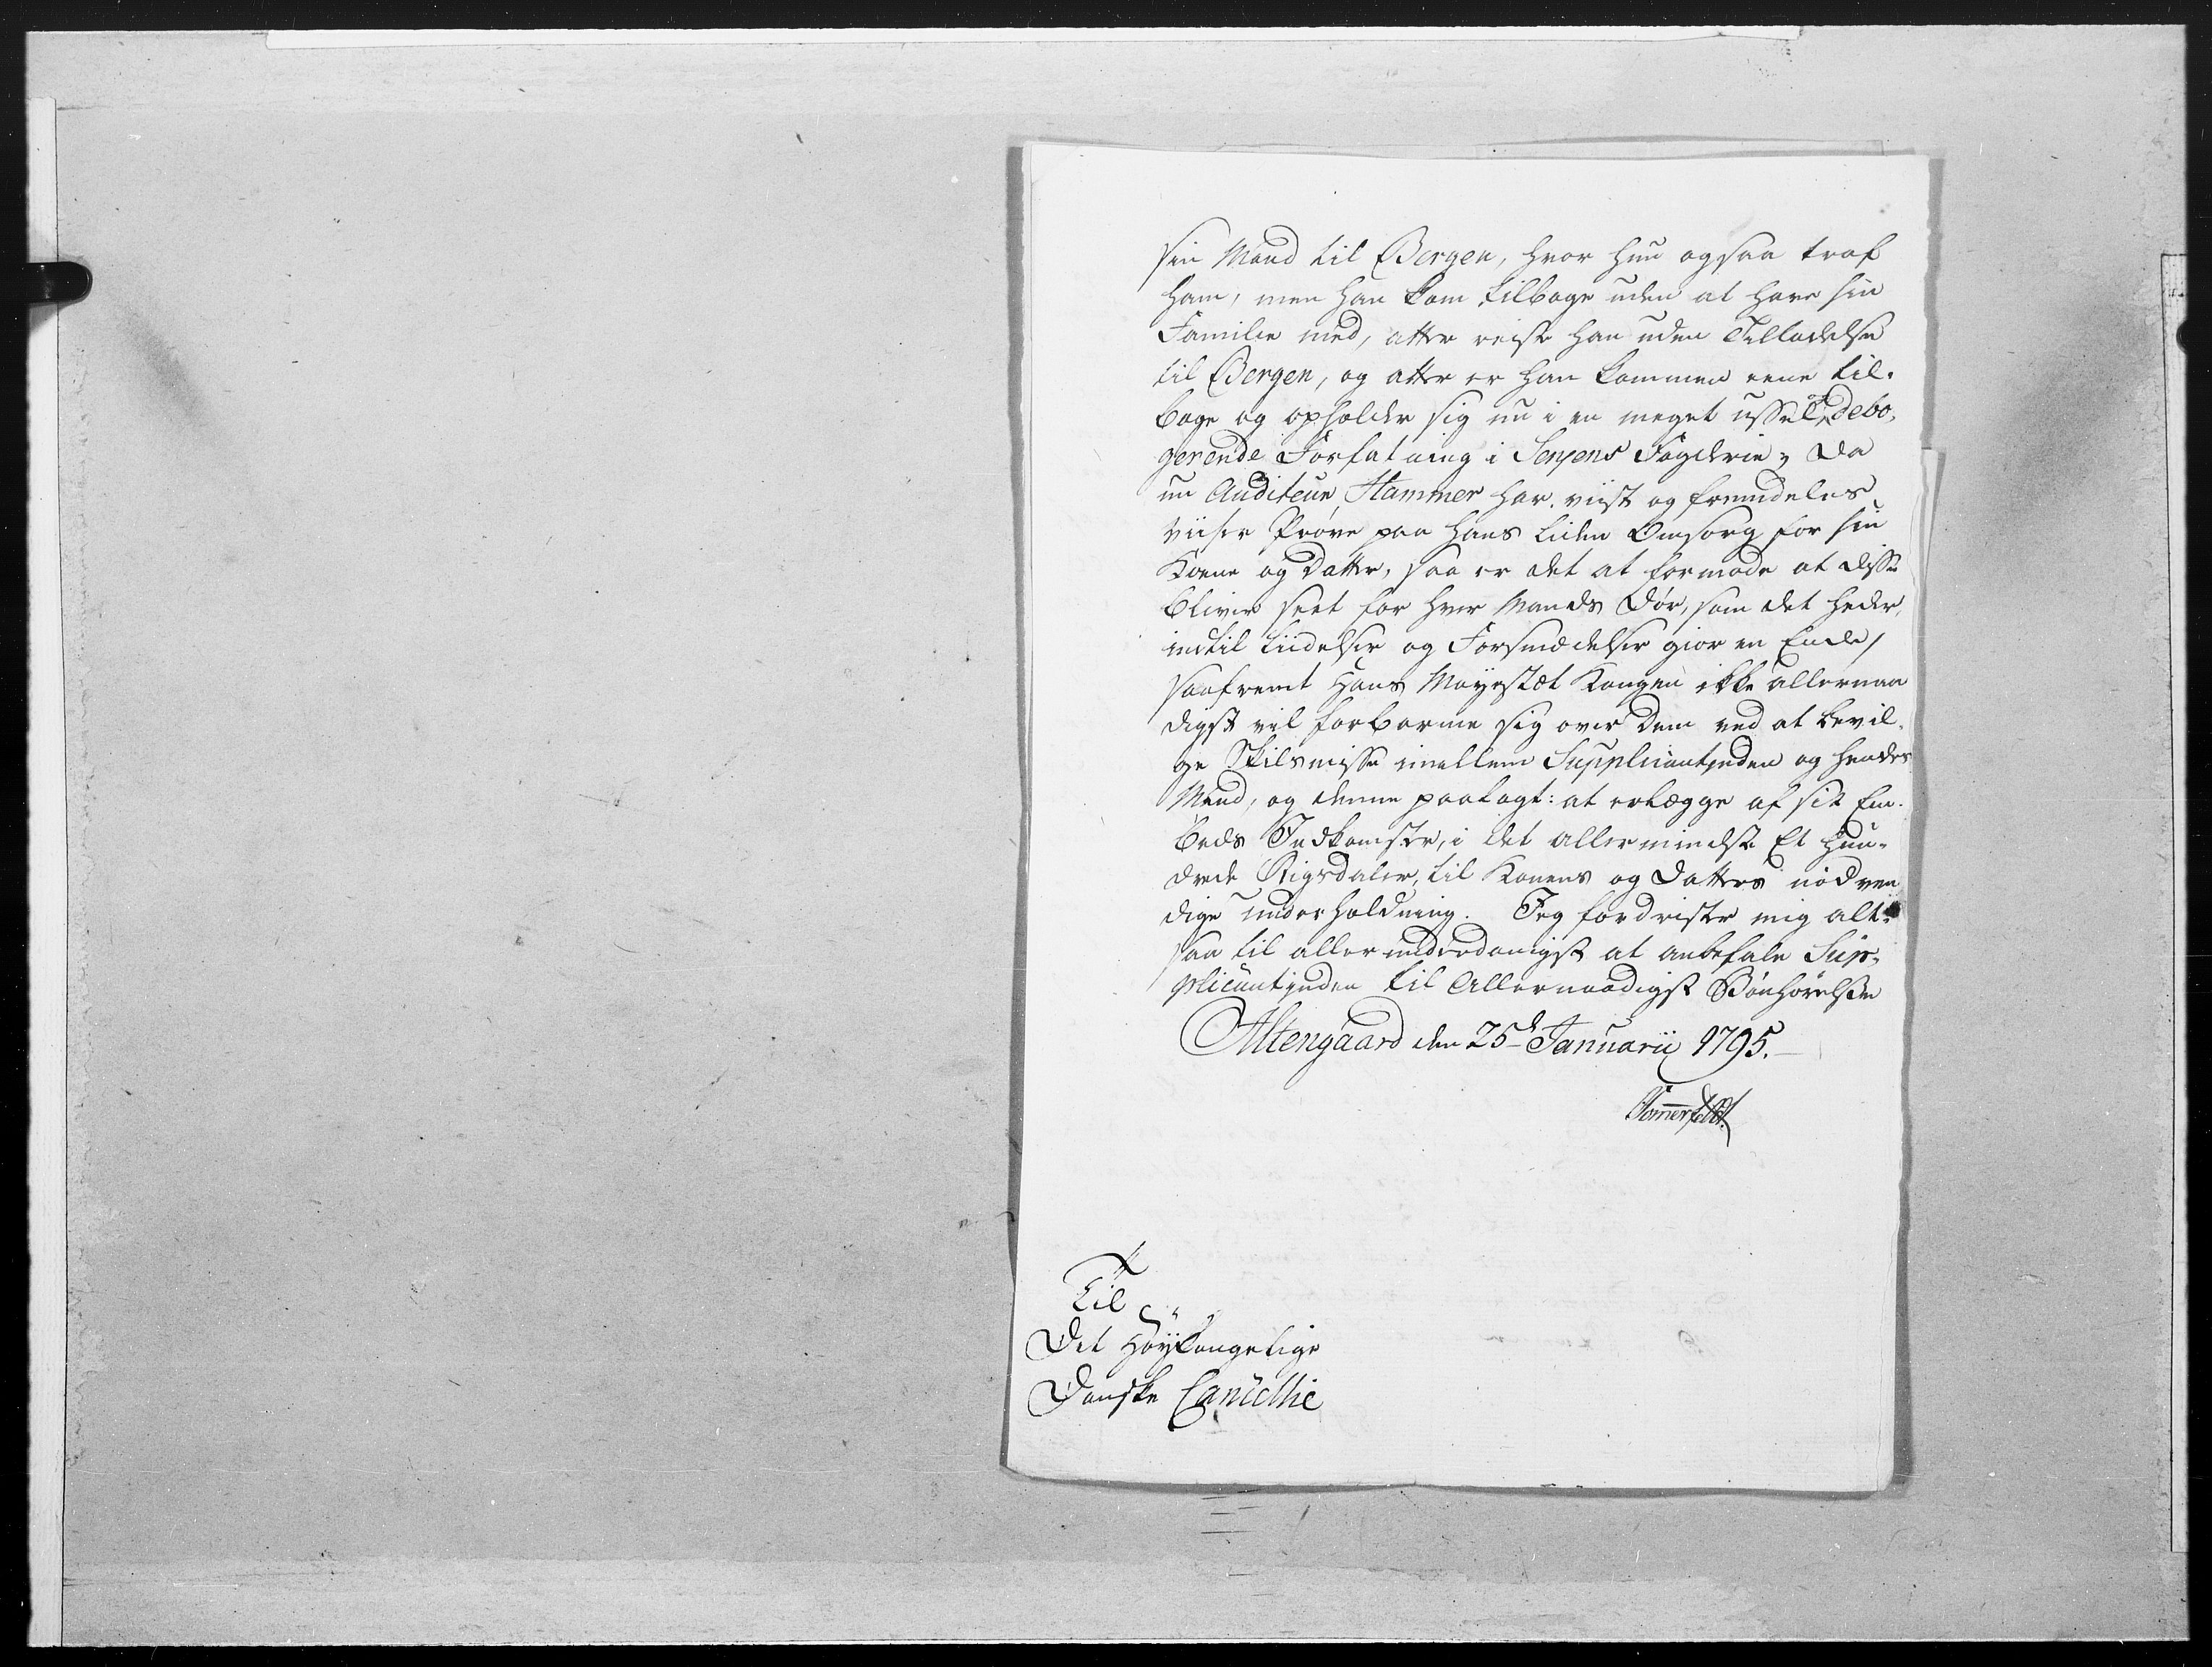 sin Mand til Bergen, hvor hun ogsaa traf
ham, men han kom tilbage uden at have sin
Familie med, atter reiste han uden Tilladelse
til Bergen, og atter er han kommen ene til-
bage og opholder sig nu i en meget ussel debo-
gerende Forfatning i Senjens Fogderie; Da
nu Auditeur Hammer har viist og fremdeles
viiser Prøve paa hans liden Omsorg for sin
Kone og Datter, saa er det at formode at disse
bliver sent for hver Mands Dør, som det heder,
indtil Liidelser og Forsmædelser giør en Ende,
saafremt Hans Mayestæt Kongen ikke allernaa
digst vil forbarme sig over dem ved at bevil-
ge Skilsmisse imellem Supplicantinden og hendes
Mand, og denne paalagt: at erlægge af sit Em-
beds Indkomster, i det allermindste Et Hun-
drede Rigsdaler, til Konens og Datters nødven
dige underholdning. Jeg fordrister mig alt-
saa til allerunderdanigst at anbefale Sup-
plicantinden til Allernaadigst Bønhørelse
Altengaard den 25de Januarii 1795.
Sommerfeldt
Til
Det Høykongelige
Danske Cancellie